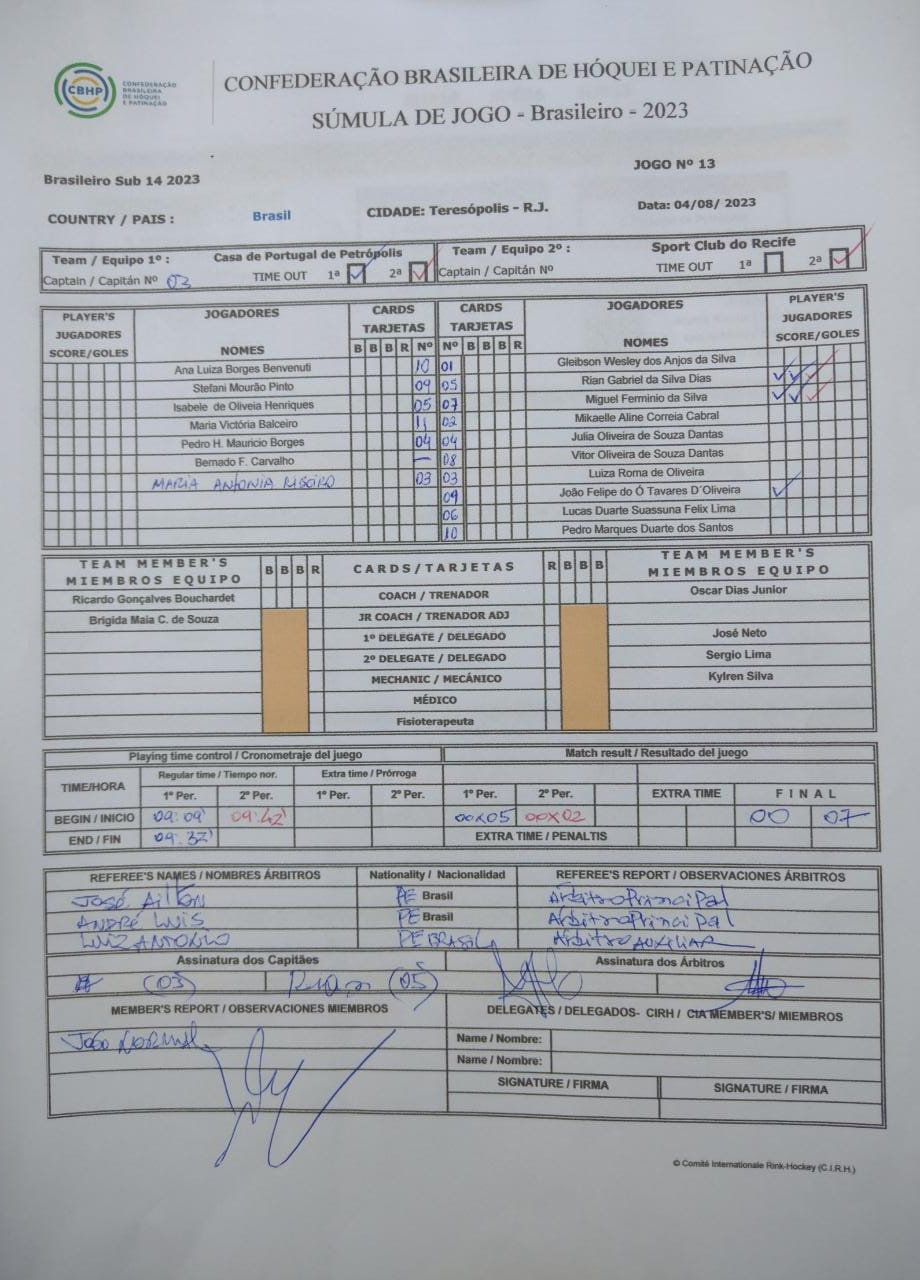 CBHP CONFEDERAÇÃO BRASILEIRA DE HÓQUEI E PATINAÇÃO
CONFEDERAÇÃO BRASILEIRA DE HÓQUEI E PATINAÇÃO
SÚMULA DE JOGO - Brasileiro - 2023
JOGO Nº 13
Brasileiro Sub 14 2023
COUNTRY / PAIS : Brasil CIDADE: Teresópolis - R.J. Data: 04/08/ 2023
Team / Equipo 1º : Casa de Portugal de Petrópolis Team / Equipo 2º : Sport Club do Recife
Captain / Capitán Nº 03 TIME OUT 1ª 2ª Captain / Capitán Nº TIME OUT 1ª 2ª
PLAYER'S JUGADORES SCORE/GOLES JOGADORES NOMES CARDS TARJETAS CARDS TARJETAS JOGADORES NOMES PLAYER'S JUGADORES SCORE/GOLES
B B B R Nº Nº B B B R
Ana Luiza Borges Benvenuti 10 01 Gleibson Wesley dos Anjos da Silva
Stefani Mourão Pinto 09 05 Rian Gabriel da Silva Dias
Isabele de Oliveia Henriques 05 07 Miguel Ferminio da Silva
Maria Victória Balceiro 11 02 Mikaelle Aline Correia Cabral
Pedro H. Mauricio Borges 04 04 Julia Oliveira de Souza Dantas
Bernado F. Carvalho — 08 Vitor Oliveira de Souza Dantas
MARIA ANTONIA 03 03 Luiza Roma de Oliveira
09 João Felipe do Ó Tavares D´Oliveira
06 Lucas Duarte Suassuna Felix Lima
10 Pedro Marques Duarte dos Santos
TEAM MEMBER'S MIEMBROS EQUIPO B B B R CARDS/TARJETAS R B B B TEAM MEMBER'S MIEMBROS EQUIPO
Ricardo Gonçalves Bouchardet COACH / TRENADOR Oscar Dias Junior
Brigida Maia C. de Souza JR COACH / TRENADOR ADJ
1º DELEGATE / DELEGADO José Neto
2º DELEGATE / DELEGADO Sergio Lima
MECHANIC / MECÁNICO Kylren Silva
MÉDICO
Fisioterapeuta
Playing time control / Cronometraje del juego Match result / Resultado del juego
TIME/HORA Regular time / Tiempo nor. Extra time / Prórroga
1º Per. 2º Per. 1º Per. 2º Per. 1º Per. 2º Per. EXTRA TIME FINAL
BEGIN / INICIO 09:09' 09:42' 00x05 00x02 00 07
END / FIN 09:32' EXTRA TIME / PENALTIS
REFEREE'S NAMES / NOMBRES ÁRBITROS Nationality / Nacionalidad REFEREE'S REPORT / OBSERVACIONES ÁRBITROS
José Ailton PE Brasil Árbitro Principal
ANDRÉ LUIS PE Brasil Árbitro Principal
LUIZ ANTONIO PE BRASIL Árbitro AUXILIAR
Assinatura dos Capitães Assinatura dos Árbitros
(03) Rian (05)
MEMBER'S REPORT / OBSERVACIONES MIEMBROS DELEGATES / DELEGADOS- CIRH / CIA MEMBER'S/ MIEMBROS
Jogo NORMAL Name / Nombre:
Name / Nombre:
SIGNATURE / FIRMA SIGNATURE / FIRMA
© Comité Internationale Rink-Hockey (C.I.R.H.)